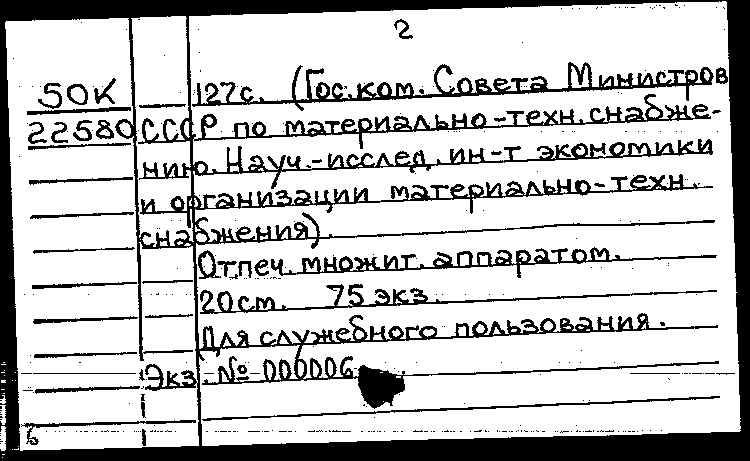 2
50К 127с. (Гос.ком. Совета Министров
22580 СССР по материально-техн. снабже-
нию. Науч.-исслед. ин-т экономики
и организации материально-техн.
снабжения).
Отпеч. множит. аппаратом.
20см. 75 экз.
Для служебного пользования.
Экз. № 000006